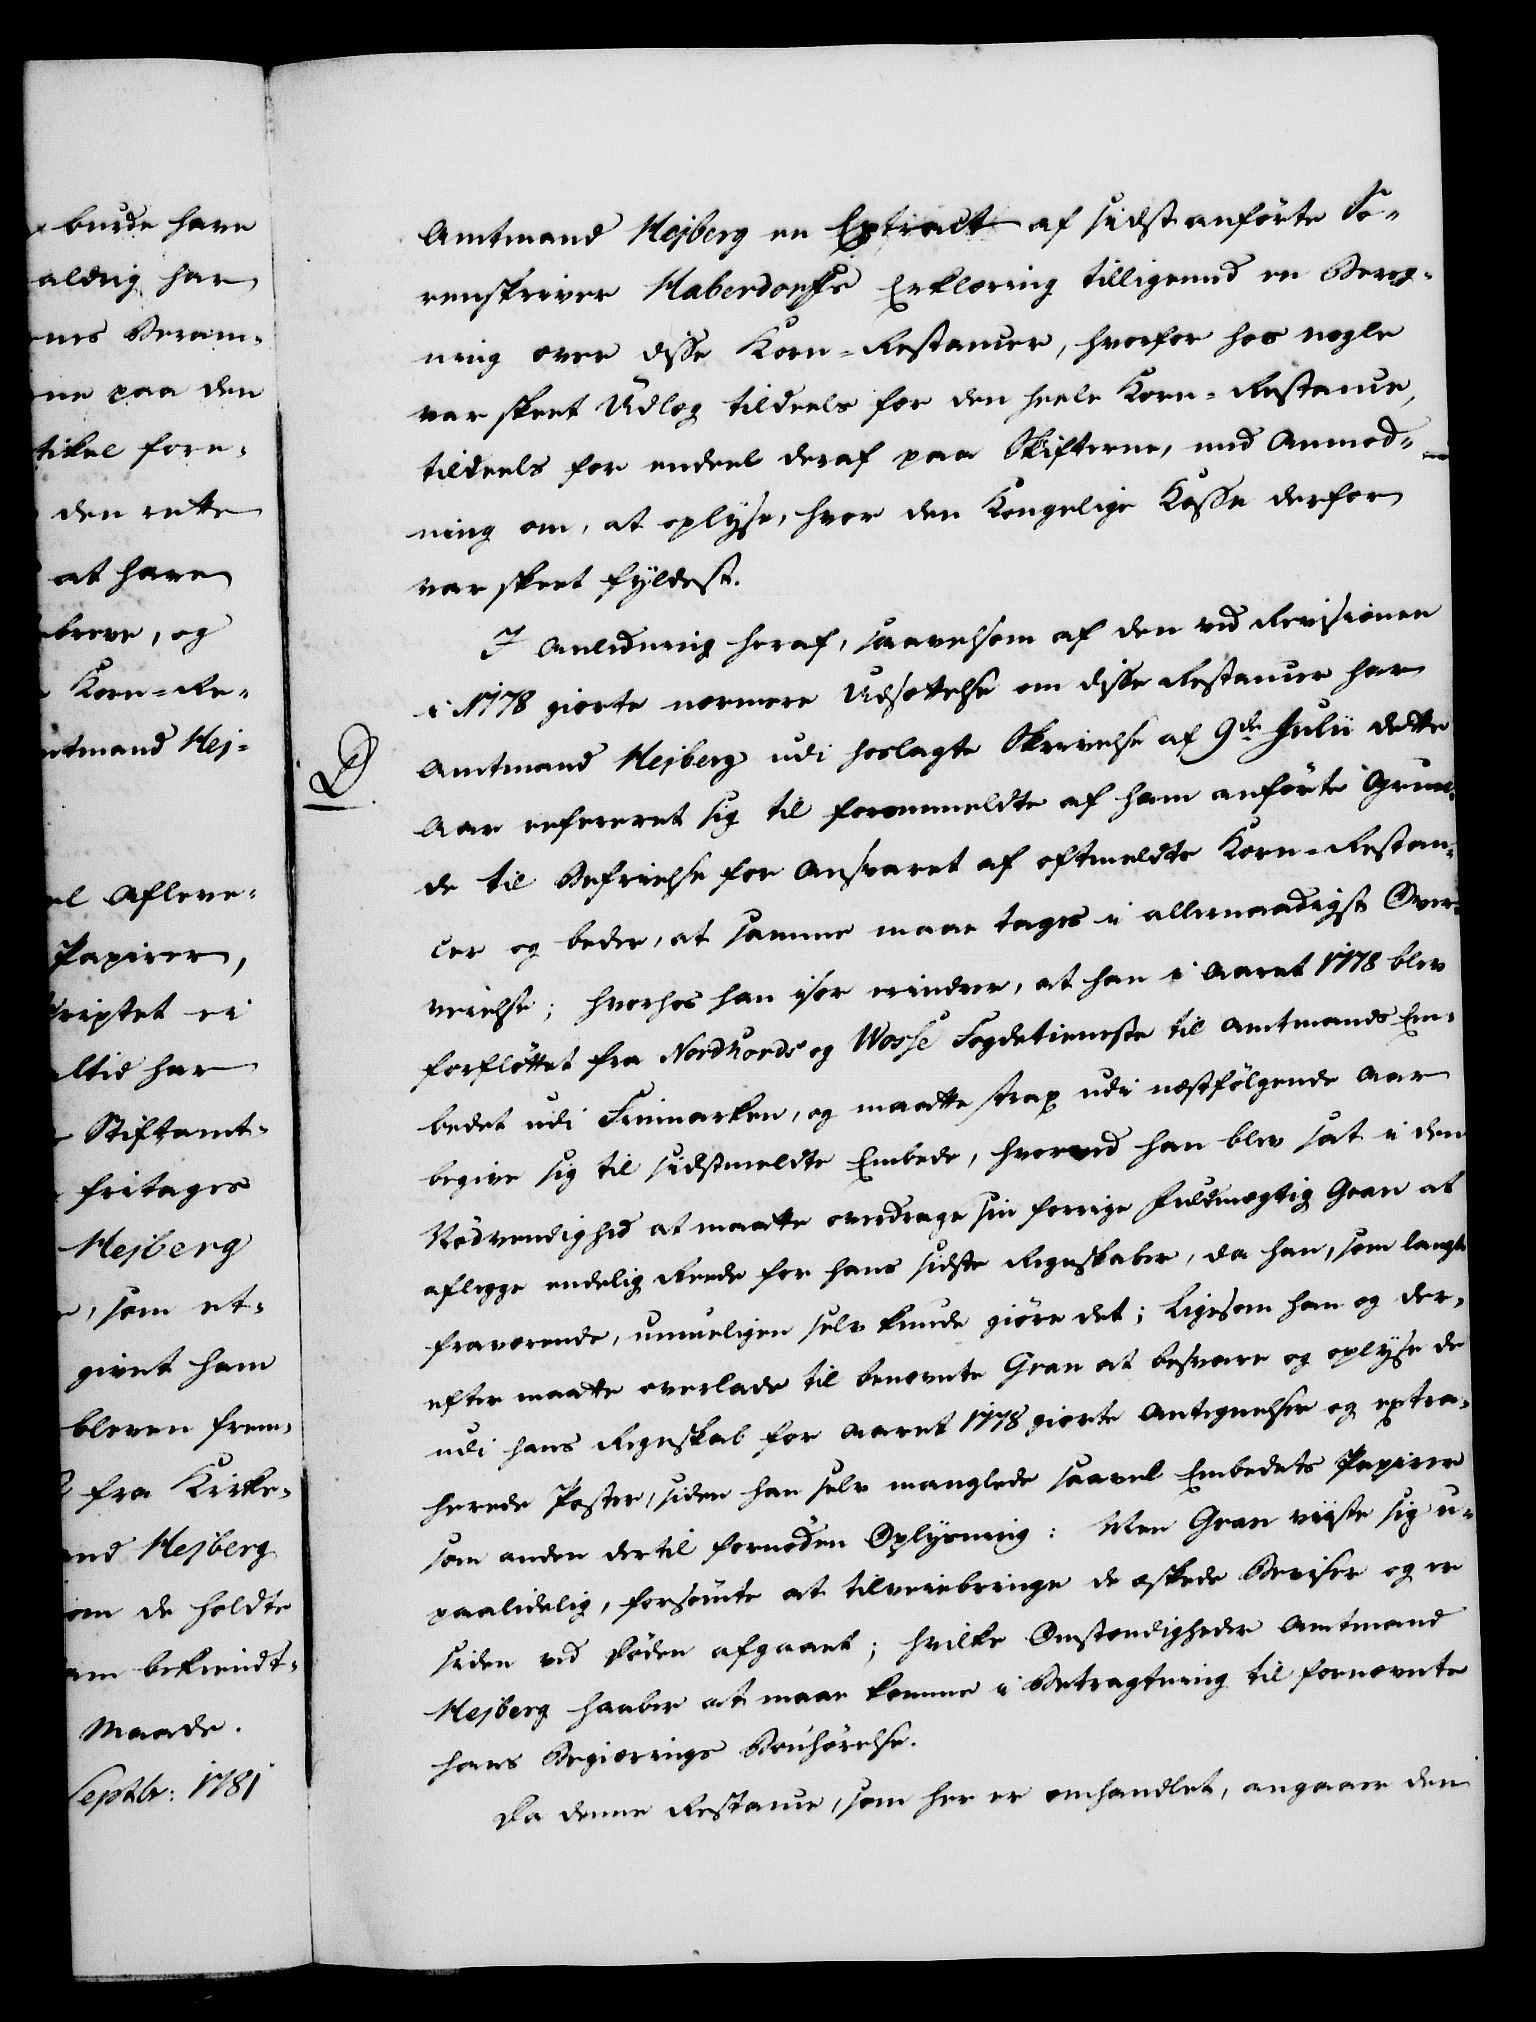 burde have
aldrig har
nes Beram-
ne paa den
tikel fore-
den rette
at have
breve, og
Korn-Re-
mtmand Hej-
el Afleve-
Papirer,
riptet ei
ltid har
Stiftamt-
fritages
Hejberg
, som et-
givet ham
bleven frem-
fra Kirke-
nd Hejberg
om de holdte
am bekiendt-
Maade.
Septbr: 1781
Amtmand Hejberg en Extract af sidst anførte So-
renskriver Haberdorffs Erklæring tilligemed en Bereg-
ning over disse Korn-Restancer, hvorfor hos nogle
var skeet Udlæg tildeels for den heele Korn-Restance,
tildeels for endeel deraf paa Skifterne, med Anmod-
ning om, at oplyse, hvor den Kongelige Kasse derfor
var skeet fyldest.
I Anledning heraf, saavelsom af den ved Revisionen
i 1778 giorte nærmere Udsættelse om disse Restancer har
D.
Amtmand Hejberg udi hoslagte Skrivelse af 9de Julii dette
Aar refereret sig til forommeldte af ham anførte Grun-
de til Befrielse for Ansvaret af oftmeldte Korn-Restan-
cer og beder, at samme maae tages i allernaadigst Over-
veielse; hvorhos han især erindrer, at han i Aaret 1778 blev
forfløttet fra Nordhords og Wosse Fogdetieneste til Amtmands Em-
bedet udi Finmarken, og maatte strax udi næstfølgende Aar
begive sig til sidstmeldte Embede, hvorved han blev sat i den
Nødvendighed at maatte overdrage sin forrige Fuldmægtig Gran at
aflegge endelig Reede for hans sidste Regnskaber, da han, som langt
fraværende, umueligen selv kunde giøre det; ligesom han og der-
efter maatte overlade til benævnte Gran at besvare og oplyse de
udi hans Regnskab for Aaret 1778 giorte Antegnelser og extra-
herede Poster, siden han selv manglede saavel Embedets Papirer
som anden dertil fornøden Oplysning: Men Gran viiste sig u-
paalidelig, forsømte at tilveiebringe de æskede Beviser og er
siden ved Døden afgaaet; hvilke Omstændigheder Amtmand
Hejberg haaber at maae komme i Betragtning til fornævnte
hans Begiærings Bønhørelse.
Da denne Restance, som her er omhandlet, angaaer den